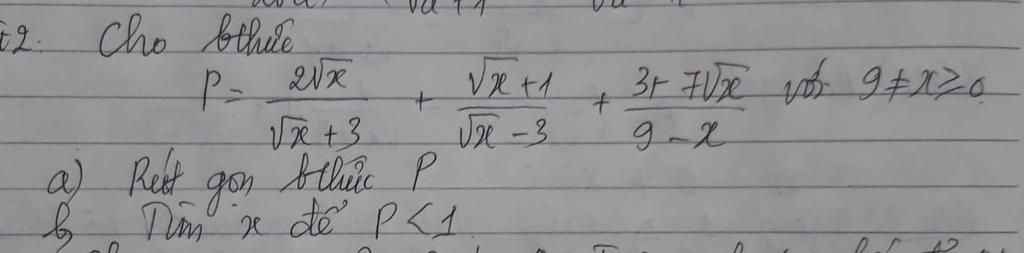 t2. Cho bthức
P = 2√x / √x + 3 + √x + 1 / √x - 3 + 3 + 7√x / 9 - x với 9 ≠ x ≥ 0
a) Rút gọn bthức P
b, Tìm x để P < 1